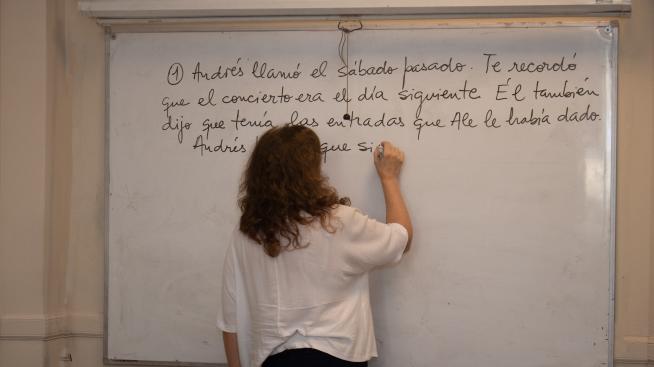 ① Andrés llamó el sábado pasado. Te recordó
que el concierto era el día siguiente. Él también
dijo que tenía las entradas que Ale le había dado.
Andrés que si